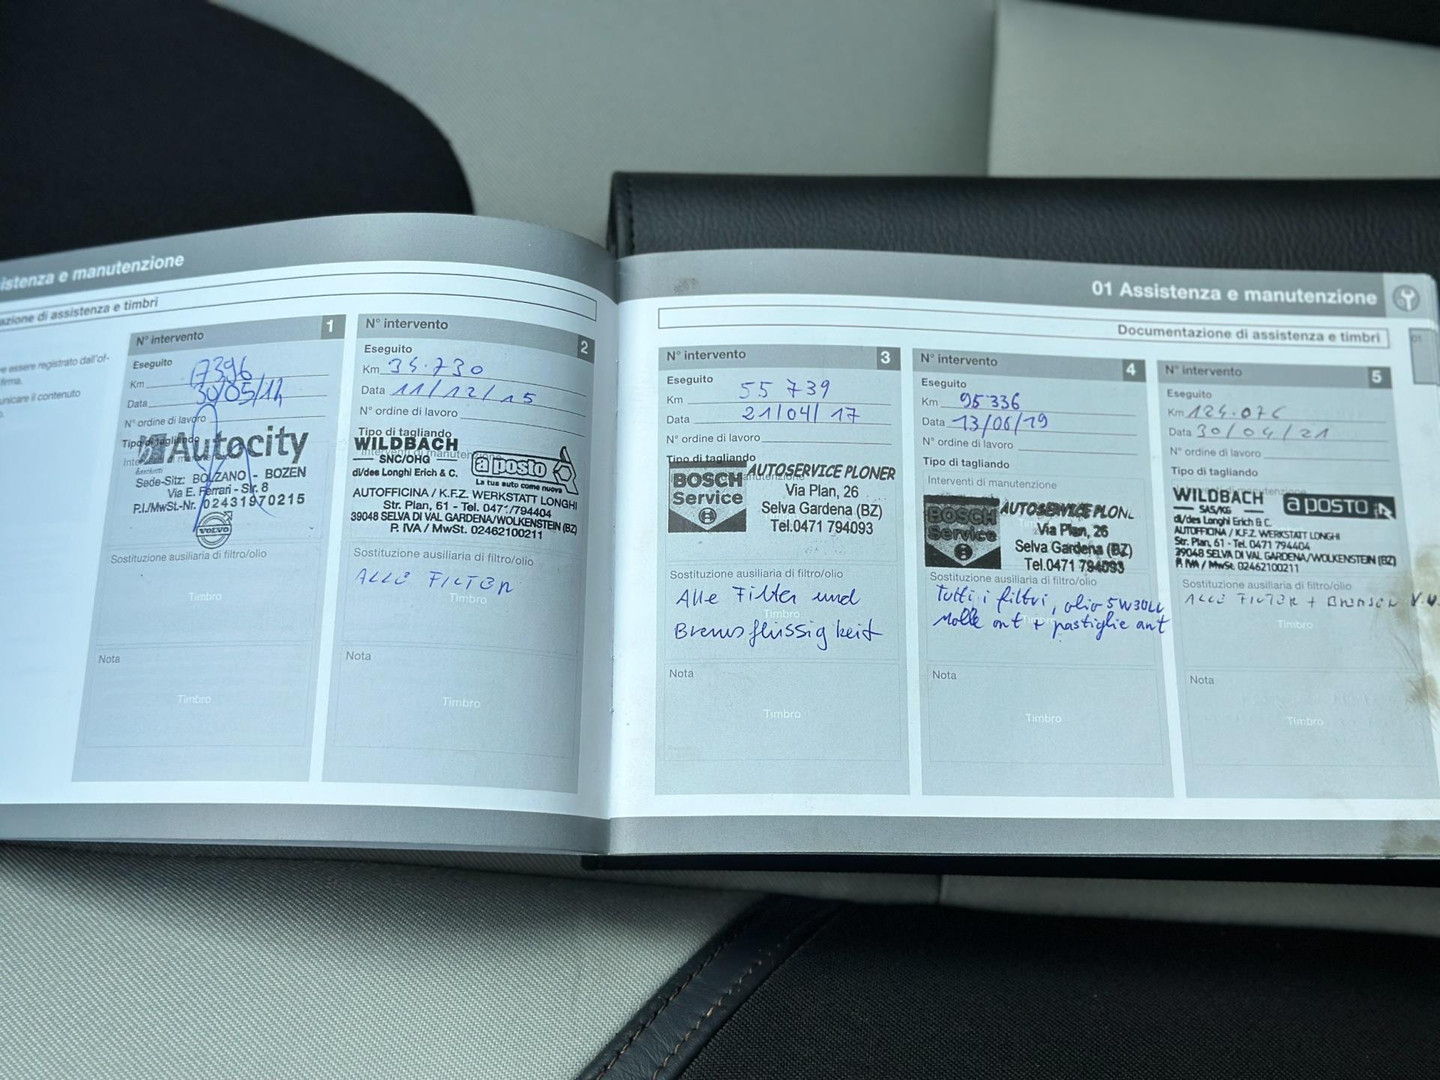 istenza e manutenzione
azione di assistenza e timbri
e essere registrato dall'of-
firma.
unicare il contenuto
o.
N° intervento 1
Eseguito
Km 17396
Data 30/05/14
N° ordine di lavoro
Tipo di tagliando
Autocity
Sede-Sitz: BOLZANO - BOZEN
Via E. Ferrari - Str. 8
P.I./MwSt.-Nr. 02431970215
VOLVO
Sostituzione ausiliaria di filtro/olio
Timbro
Nota
Timbro
N° intervento 2
Eseguito
Km 34.730
Data 11/12/15
N° ordine di lavoro
Tipo di tagliando
Interventi di manutenzione
WILDBACH
SNC/OHG
di/des Longhi Erich & C.
a posto
La tua auto come nuova
AUTOFFICINA / K.F.Z. WERKSTATT LONGHI
Str. Plan, 61 - Tel. 0471/794404
39048 SELVA DI VAL GARDENA/WOLKENSTEIN (BZ)
P. IVA / MwSt. 02462100211
Sostituzione ausiliaria di filtro/olio
ALLE FILTER
Timbro
Nota
Timbro
01 Assistenza e manutenzione
Documentazione di assistenza e timbri
01
N° intervento 3
Eseguito
Km 55 739
Data 21/04/17
N° ordine di lavoro
Tipo di tagliando
BOSCH
Service
AUTOSERVICE PLONER
Via Plan, 26
Selva Gardena (BZ)
Tel.0471 794093
Sostituzione ausiliaria di filtro/olio
Alle Filter und
Timbro
Bremsflüssigkeit
Nota
Timbro
N° intervento 4
Eseguito
Km 95336
Data 13/06/19
N° ordine di lavoro
Tipo di tagliando
Interventi di manutenzione
BOSCH
Service
AUTOSERVICE PLON
Via Plan, 26
Selva Gardena (BZ)
Tel.0471 794093
Sostituzione ausiliaria di filtro/olio
Tutti i filtri, olio 5W30LL
Molle ant + pastiglie ant
Nota
Timbro
N° intervento 5
Eseguito
Km 124.076
Data 30/04/21
N° ordine di lavoro
Tipo di tagliando
WILDBACH
SAS/KG
di/des Longhi Erich & C.
a posto
AUTOFFICINA / K.F.Z. WERKSTATT LONGHI
Str. Plan, 61 - Tel. 0471 794404
39048 SELVA DI VAL GARDENA/WOLKENSTEIN (BZ)
P. IVA / MwSt. 02462100211
Sostituzione ausiliaria di filtro/olio
ALLE FILTER + BREMSEN
Timbro
Nota
Timbro